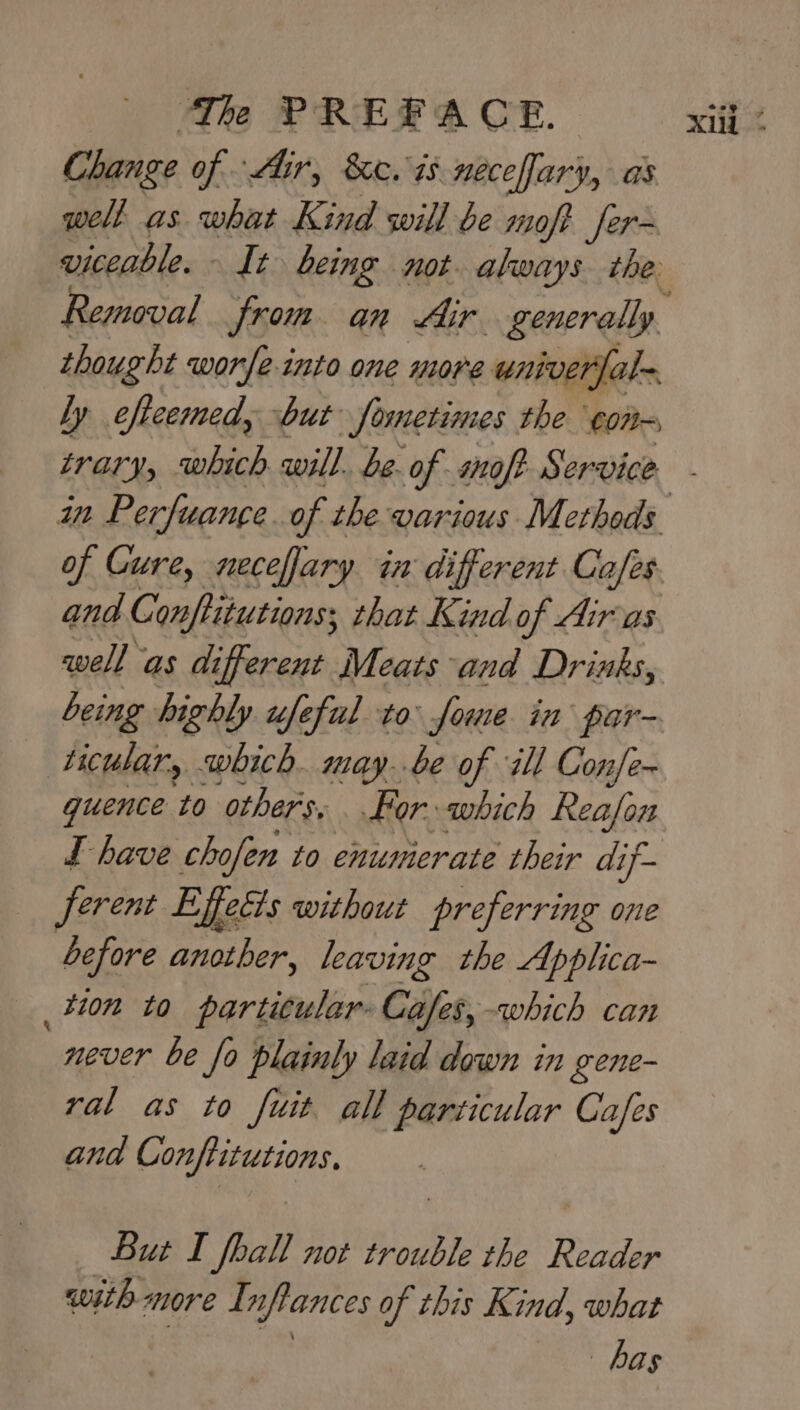 The PREFACE. xiii
Change of Air, &c. is neceſſary, as
well as what Kind will be moſt ſer-
viceable. It being not always the
Removal from an Air generally
thought worſe into one more univerſal-
ly eſteemed, but ſometimes the con-
trary, which will be of moſt Service
in Perſuance of the various Methods
of Cure, neceſſary in different Caſes
and Conſtitutions; that Kind of Air as
well as different Meats and Drinks,
being highly uſeful to ſome in par-
ticular, which may be of ill Conſe-
quence to others. For which Reaſon
I have choſen to enumerate their dif-
ferent Effects without preferring one
before another, leaving the Applica-
tion to particular Caſes, which can
never be ſo plainly laid down in gene-
ral as to ſuit all particular Caſes
and Conſtitutions.
But I ſhall not trouble the Reader
with more Inſtances of this Kind, what
has